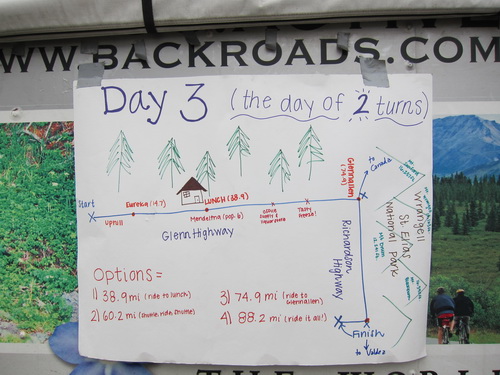 WW.BACKROADS.COM
Day 3 (the day of 2 turns)
to Canada
Glennallen
(74.9)
Start
Eureka (14.7)
LUNCH (38.9)
Uphill
Mendeltna (pop. 6)
Tasty
Glenn Highway
Richardson
Highway
Wrangell
St Elias
National Park
Options =
1) 38.9 mi (ride to lunch)
2) 60.2 mi (shuttle, ride, shuttle)
3) 74.9 mi (ride to
Glennallen)
4) 88.2 mi (ride it all!)
Finish
to Valdez
THE WORL